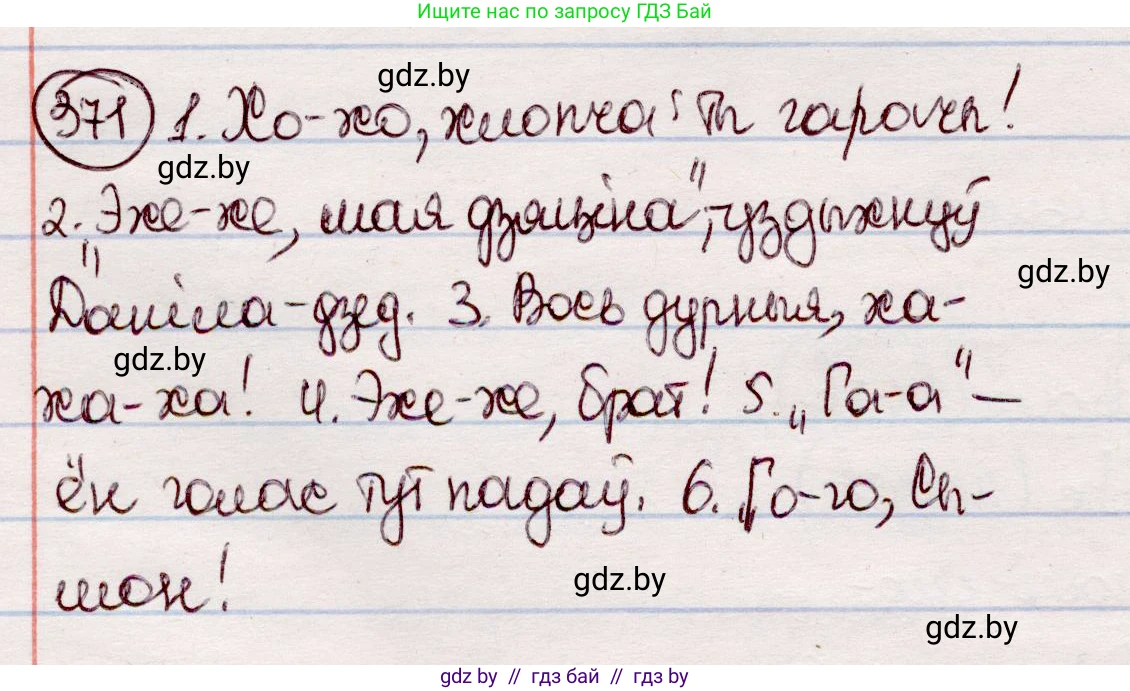 Ищите нас по запросу ГДЗ Бай
371 1. Хо-хо, хлопча! Ты гарачы!
gdz.by
gdz.by
2. Эхе-хе, мая дзяціна", - уздыхнуў
gdz.by
"Даніла-дзед. 3. Вось дурныя, ха-
gdz.by
ха-ха! 4. Эхе-хе, брат! 5. „Га-а" —
ён голас тут падаў. 6. Го-го, Сы-
мон!
gdz.by
gdz.by
gdz.by // гдз бай // гдз by